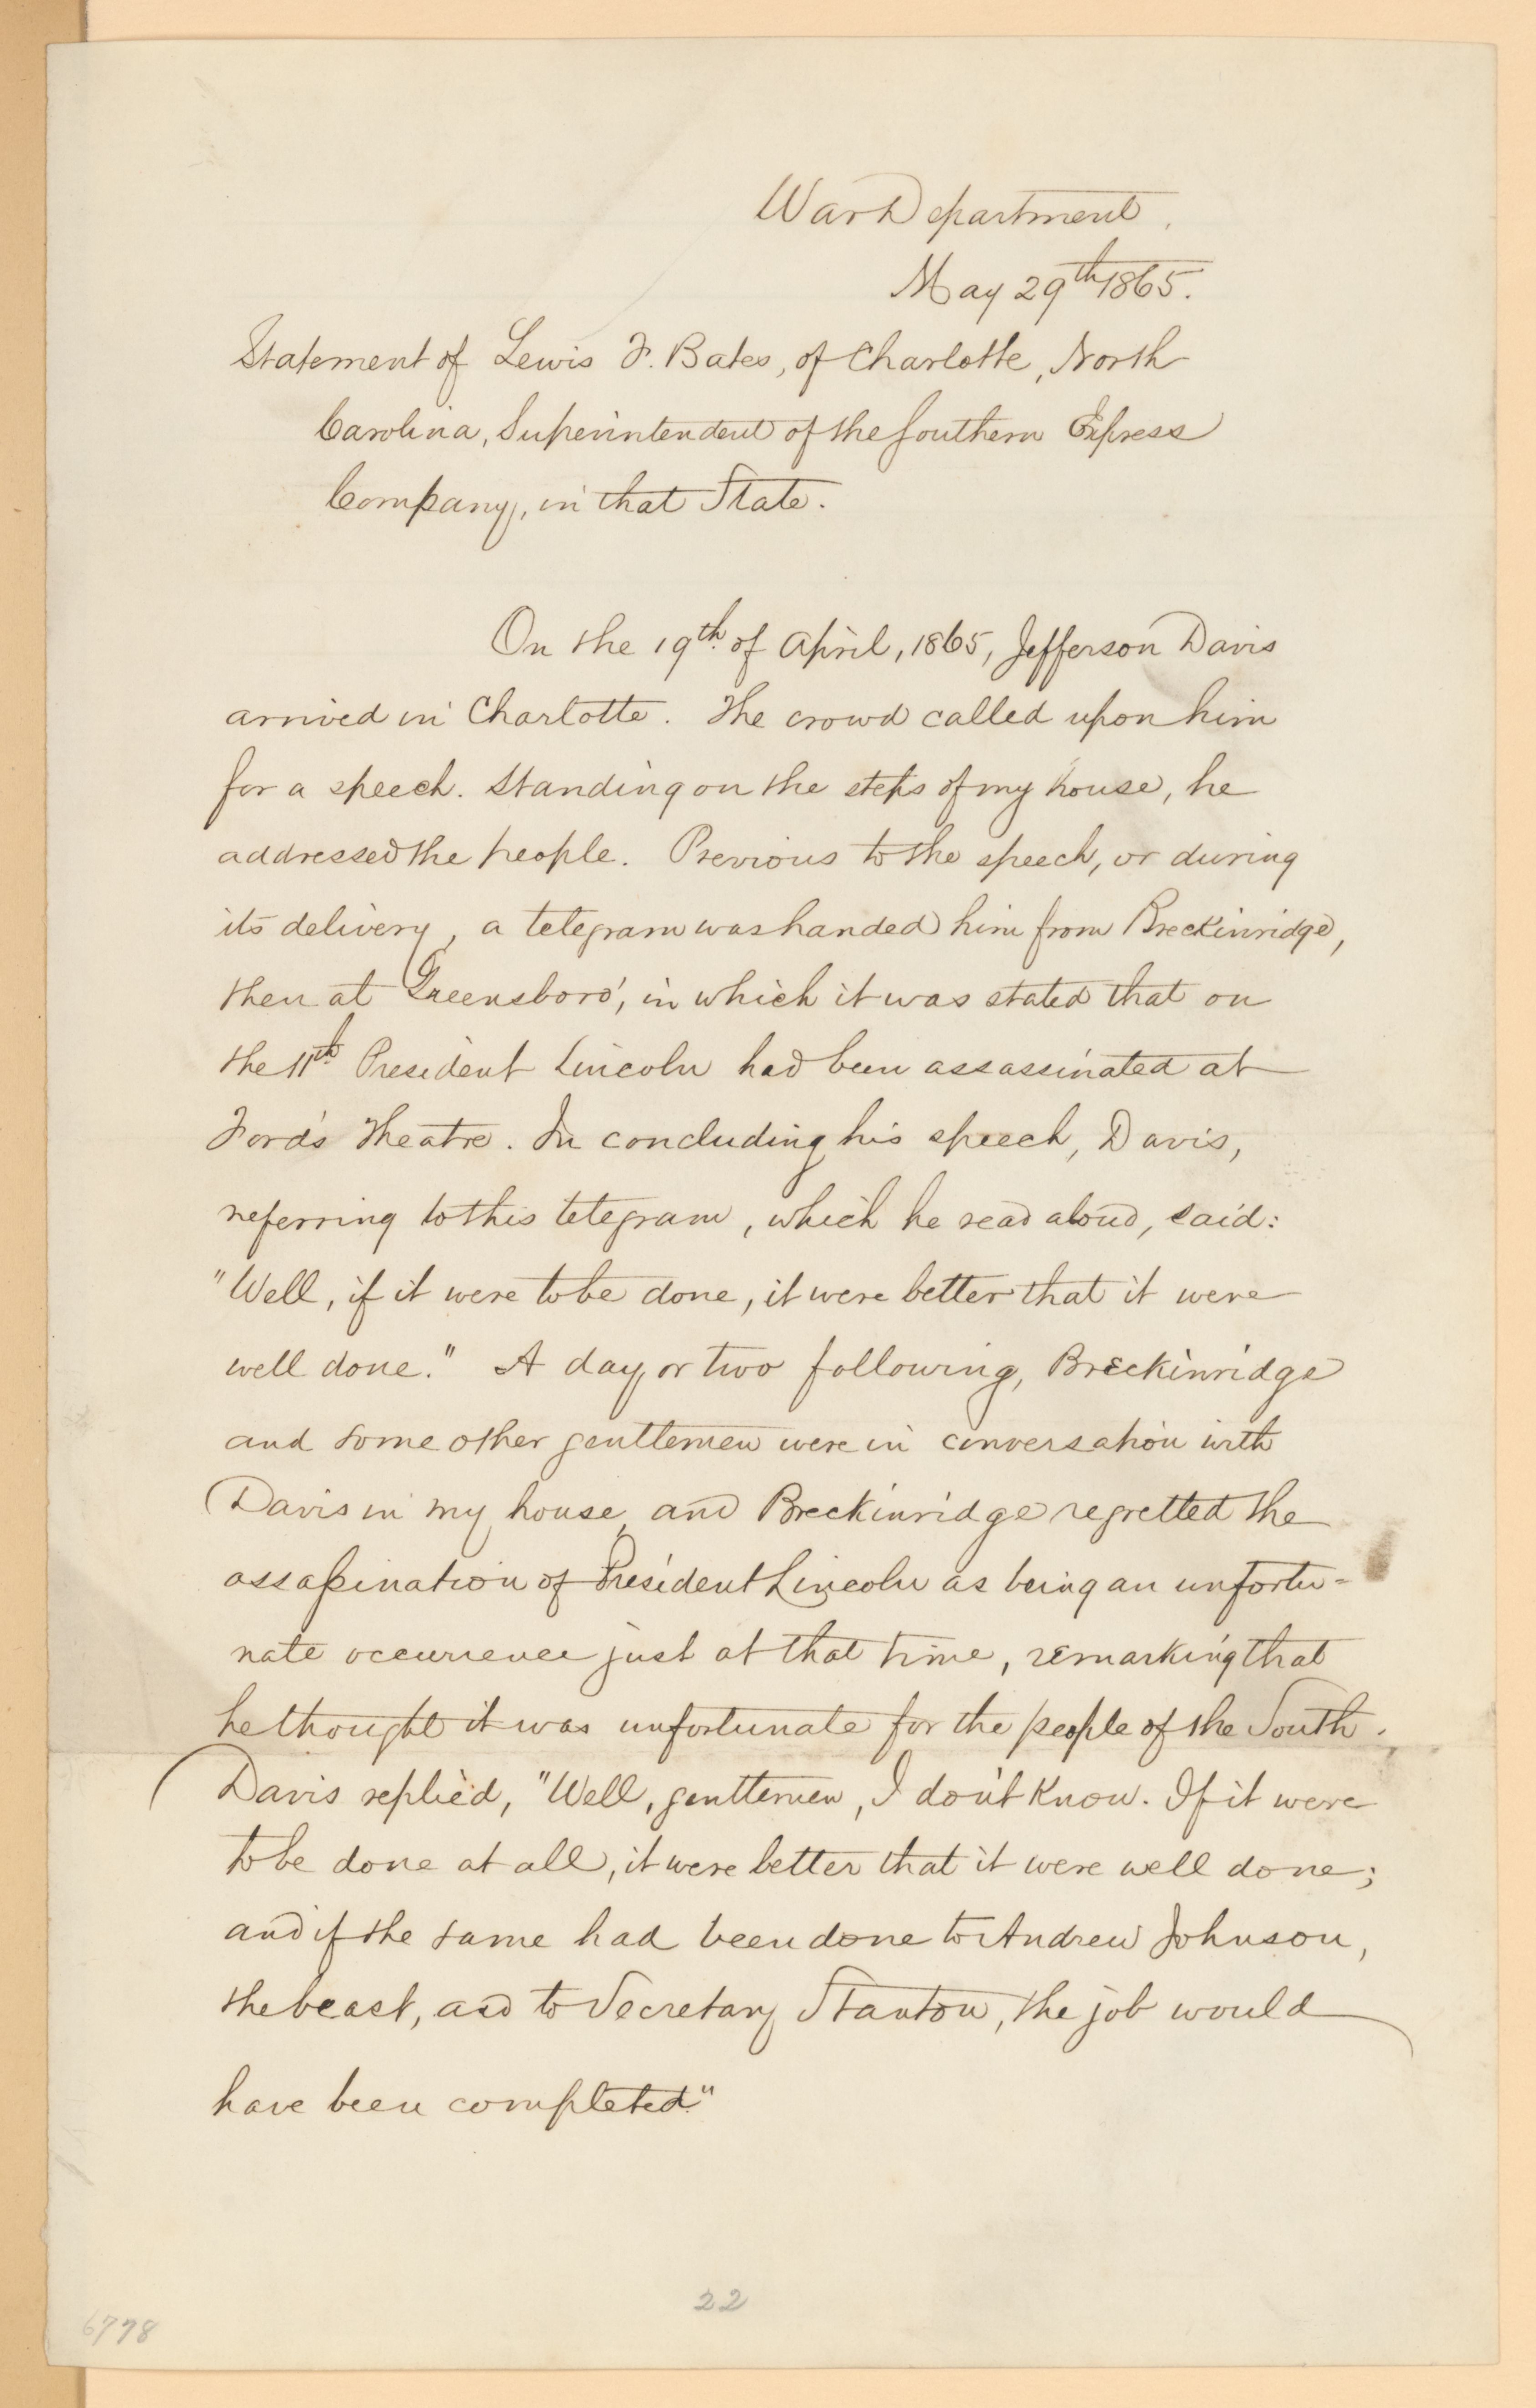 War Department.
May 29th 1865.
Statement of Lewis F. Bates, of Charlotte, North
Carolina, Superintendent of the Southern Express
Company, in that State.
On the 19th of April, 1865, Jefferson Davis
arrived in Charlotte. The crowd called upon him
for a speech. Standing on the steps of my house, he
addressed the people. Previous to the speech, or during
its delivery, a telegram was handed him from Breckinridge,
then at Greensboro', in which it was stated that on
the 11th President Lincoln had been assassinated at
Ford's Theatre. In concluding his speech, Davis,
referring to this telegram, which he read aloud, said:
"Well, if it were to be done, it were better that it were
well done." A day or two following, Breckinridge
and some other gentlemen were in conversation with
Davis in my house, and Breckinridge regretted the
assassination of President Lincoln as being an unfortu=
nate occurrence just at that time, remarking that
he thought it was unfortunate for the people of the South.
Davis replied, "Well, gentlemen, I don't know. If it were
to be done at all, it were better that it were well done;
and if the same had been done to Andrew Johnson,
the beast, and to Secretary Stanton, the job would
have been completed."
22
6778